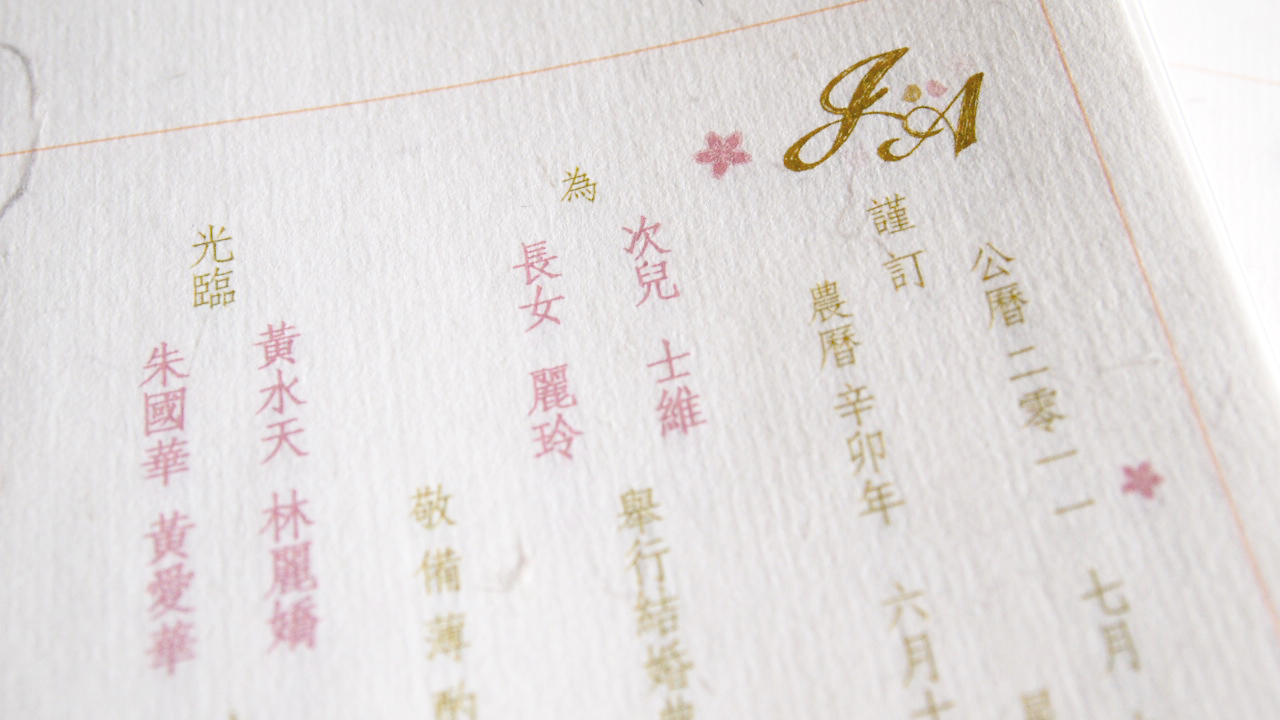 JA
公曆 二零一一 七月
謹訂
農曆 辛卯年 六月十
為
次兒 士維
長女 麗玲
舉行結婚典
敬備薄酌
光臨
黃水天 林麗嬌
朱國華 黃愛華